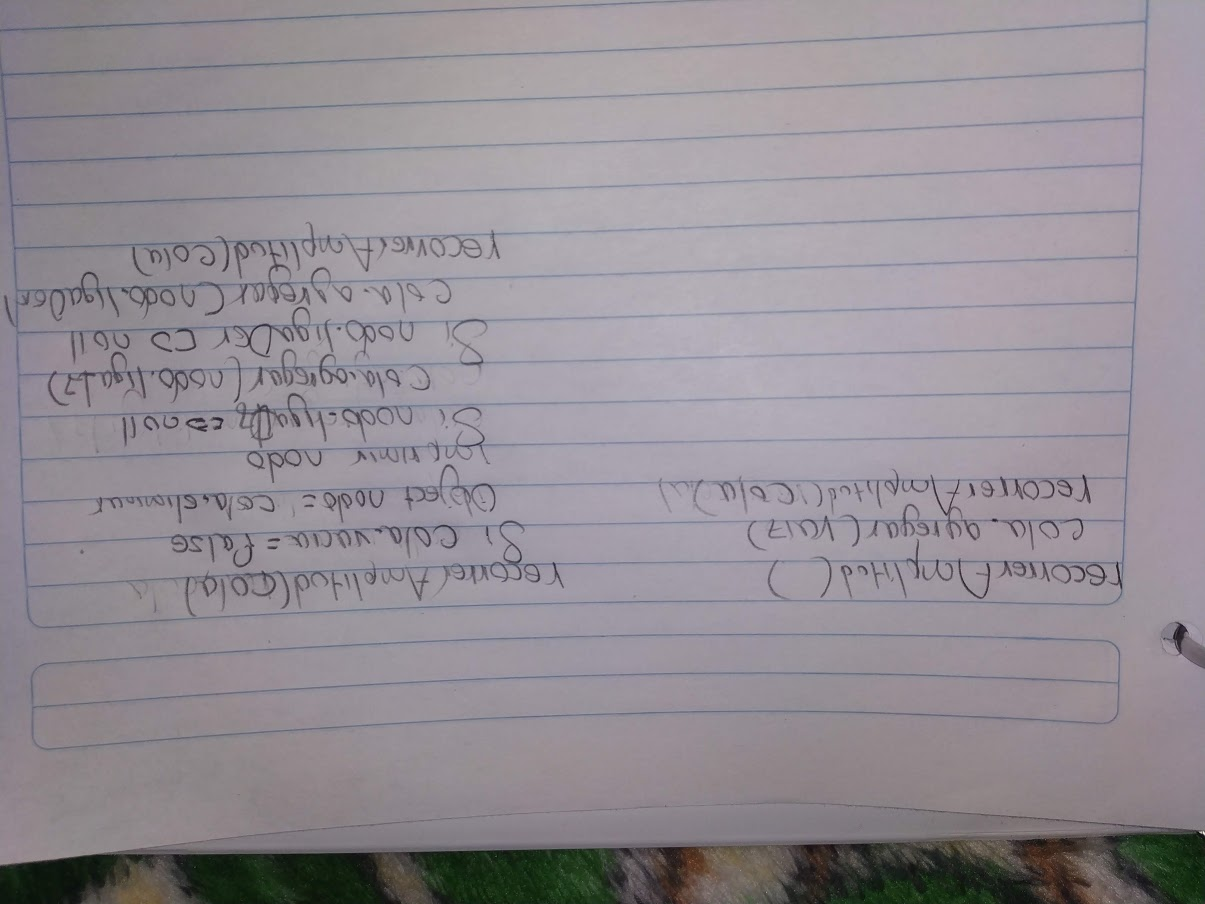 recorrerAmplitud( )
cola.agregar(raiz)
recorrerAmplitud(cola)
recorrerAmplitud(cola)
Si cola.vacia = false
Object nodo = cola.eliminar
imprimir nodo
Si nodo.ligaIz <> null
cola.agregar(nodo.ligaIz)
Si nodo.ligaDer <> null
cola.agregar(nodo.ligaDer)
recorrerAmplitud(cola)